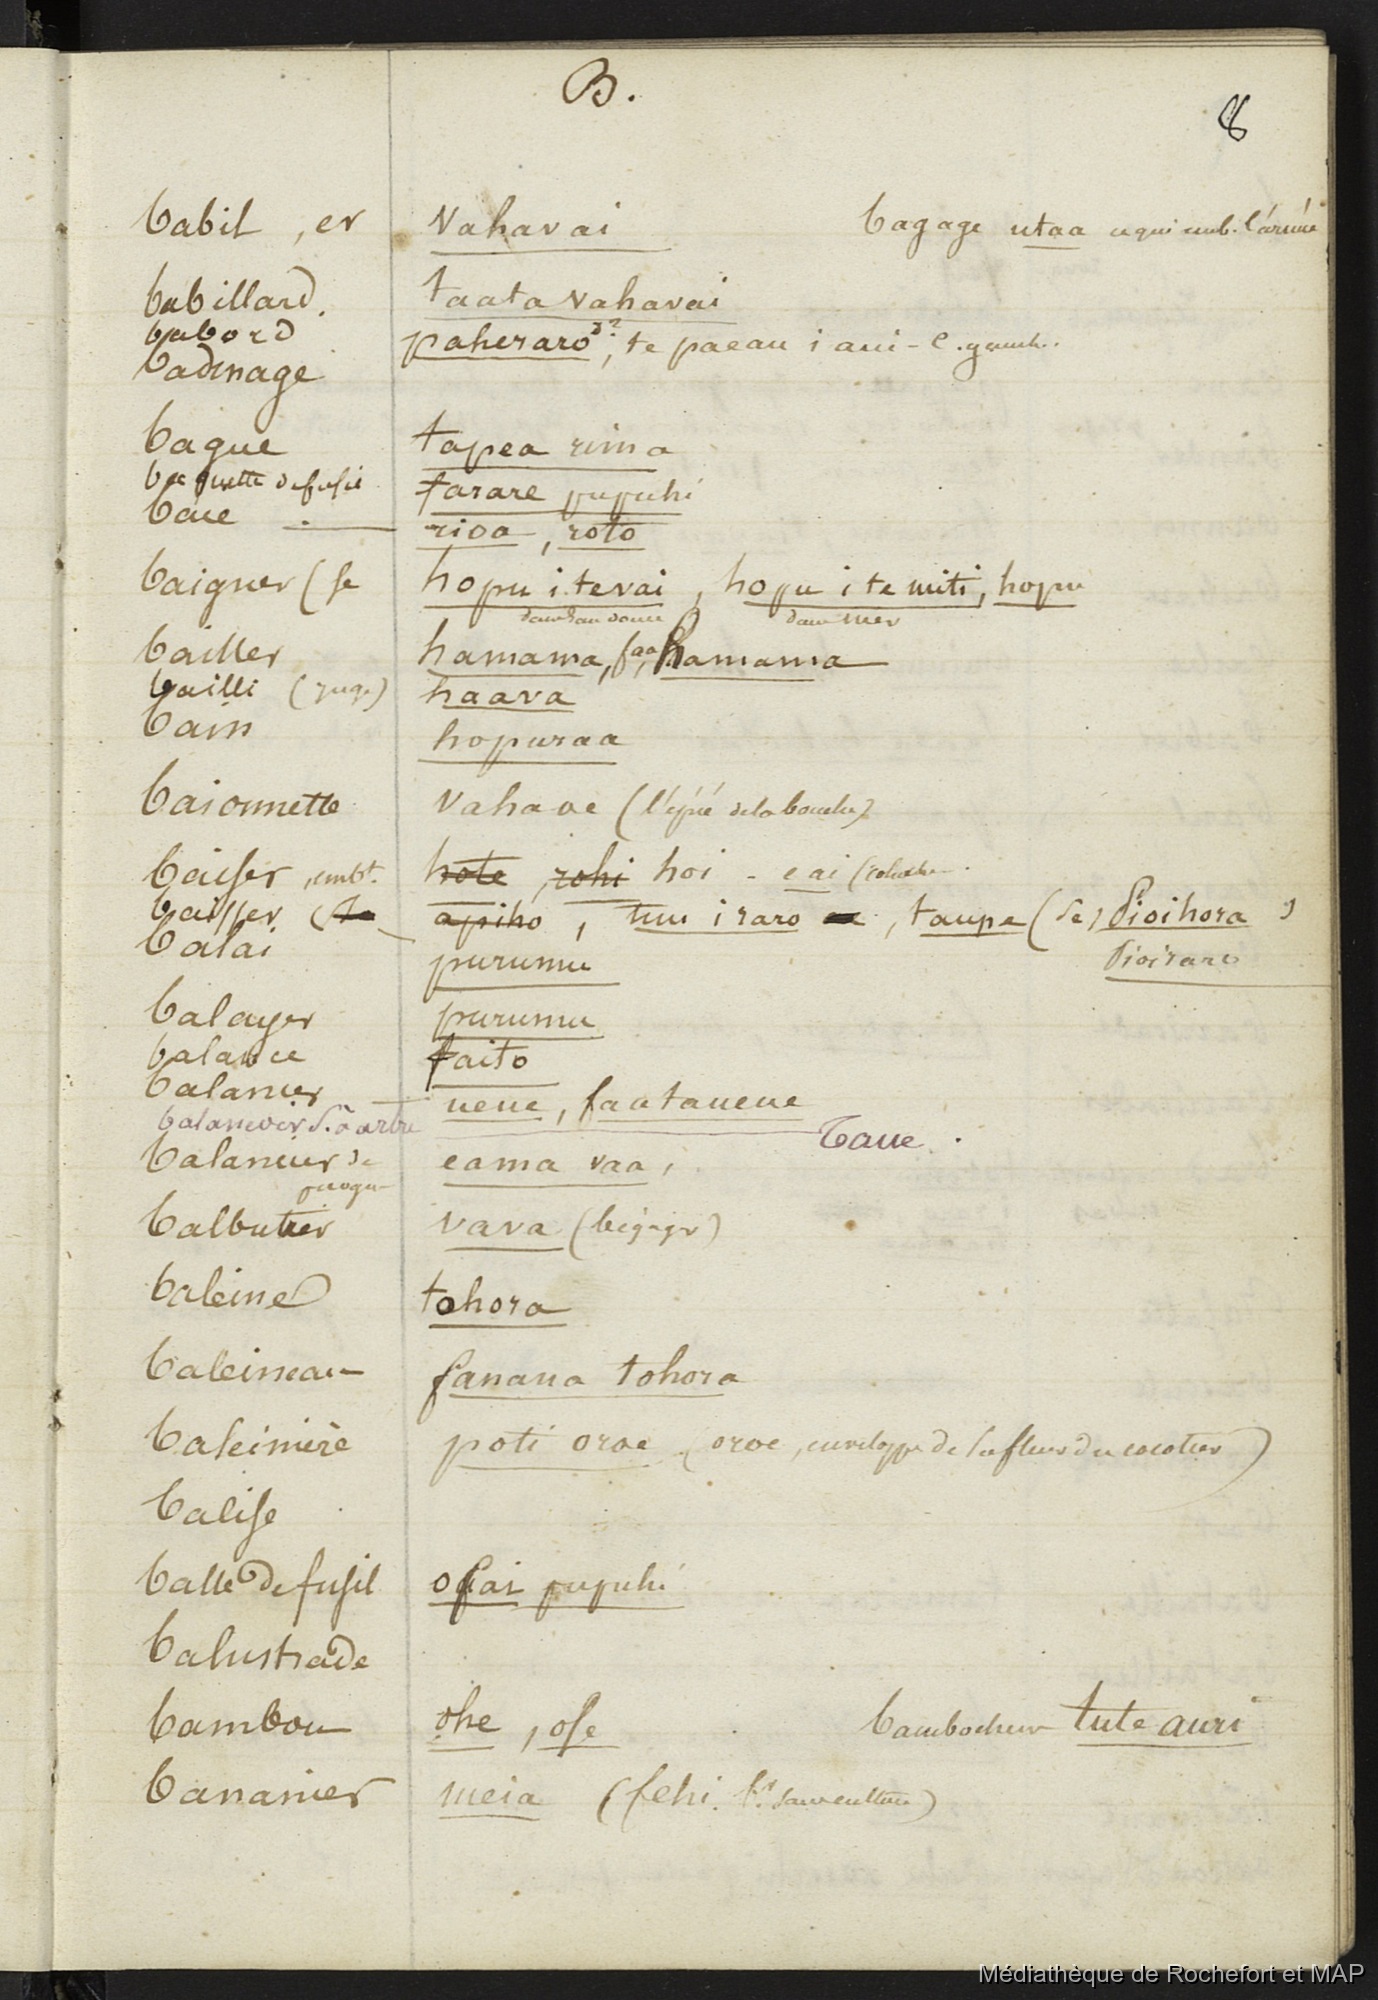 B.
8
babil, er vahavai bagage utaa
babillard. taata vahavai
babord paheraro, te paeau i aui - c. gauch.
badinage
bague tapea rima
baguette de fusil tarare pupuhi
baie rioa, roto
baigner (se hopu i te vai, hopu i te miti, hopu
dans eau douce dans mer
bailler hamama, faa hamama
bailli (juge) haava
bain hopuraa
baionnette vahaoe (l'épée de la bouche)
baiser, embt. hote, rohi hoi - eai
baisser (se apiho, tuu i raro, taupe (se) pioihora
balai purumu pioiraro
balayer purumu
balance faito
balancer ueue, faataueue
balancoir s. à arbre taue.
balancier de eama vaa,
pirogue
balbutier vava (bégayer)
baleine tohora
baleineau fanaua tohora
baleinière poti oroe (oroe, enveloppe de la fleur du cocotier)
balise
balle de fusil ofai pupuhi
balustrade
bambou ohe, ofe bambocheur tute auri
bananier meia (fehi. bn. sans culture)
Médiathèque de Rochefort et MAP